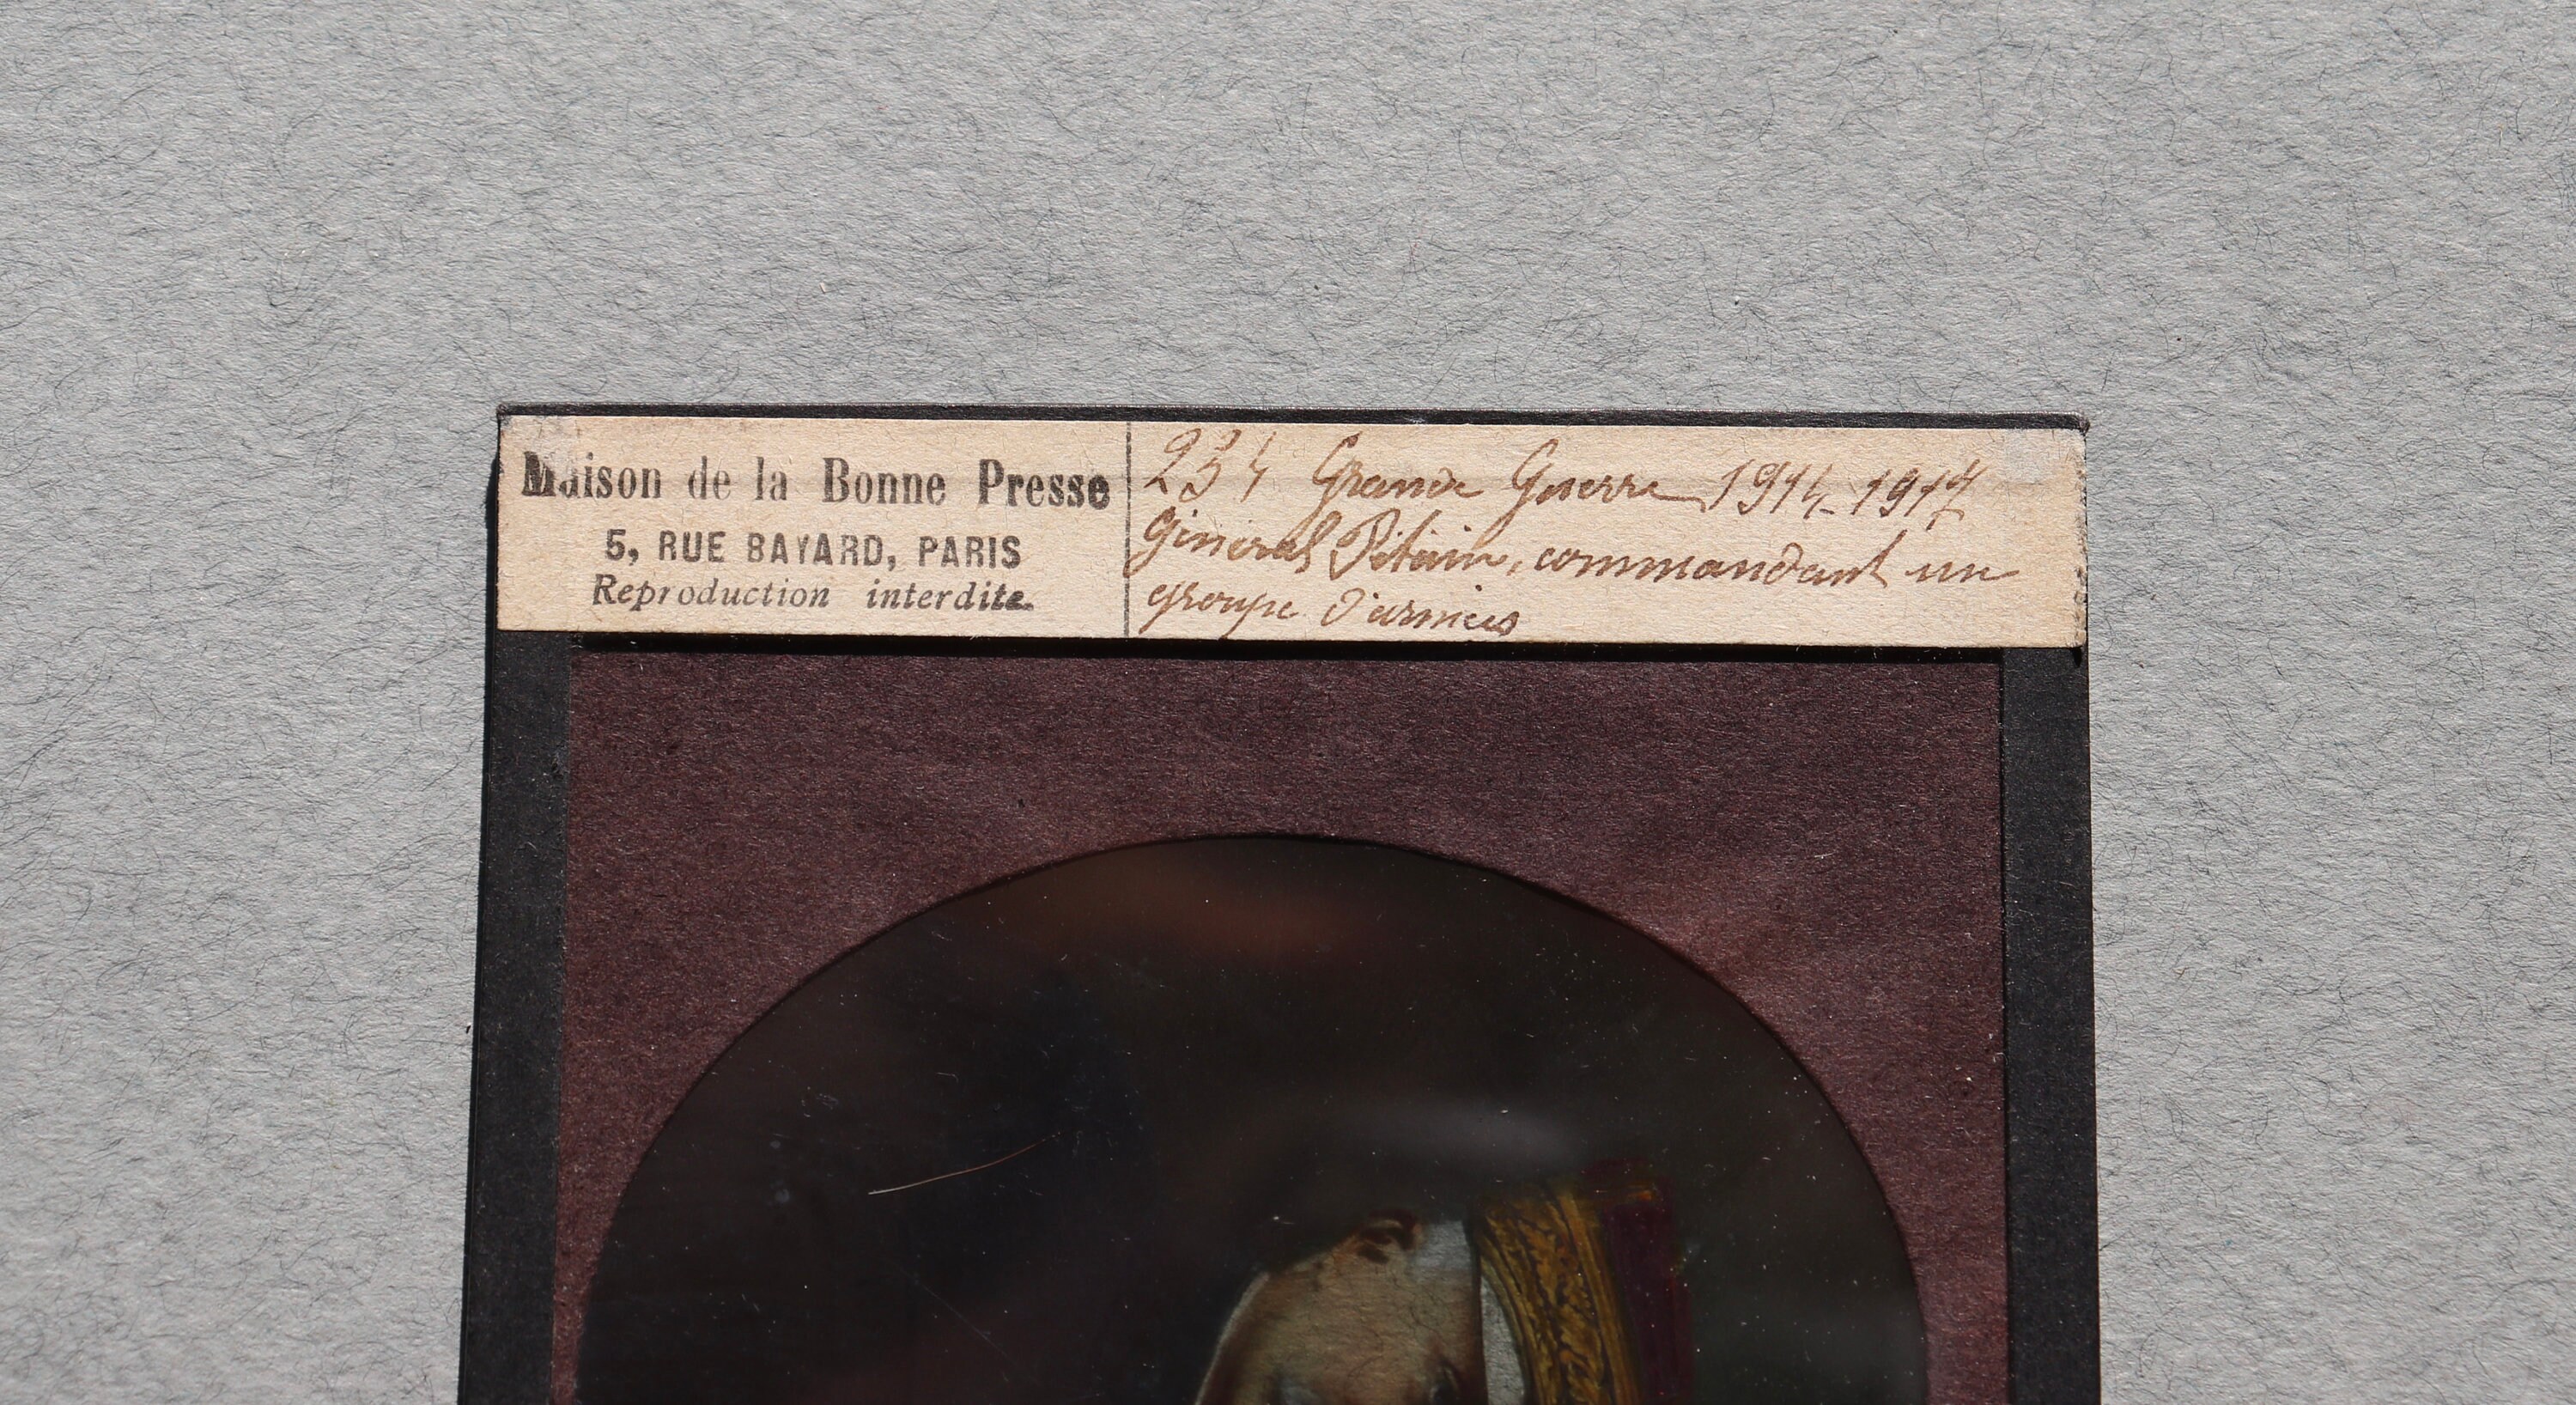 Maison de la Bonne Presse
5, RUE BAYARD, PARIS
Reproduction interdite.
234 Grande Guerre 1914-1917
Général Pétain, commandant un
groupe d'armées